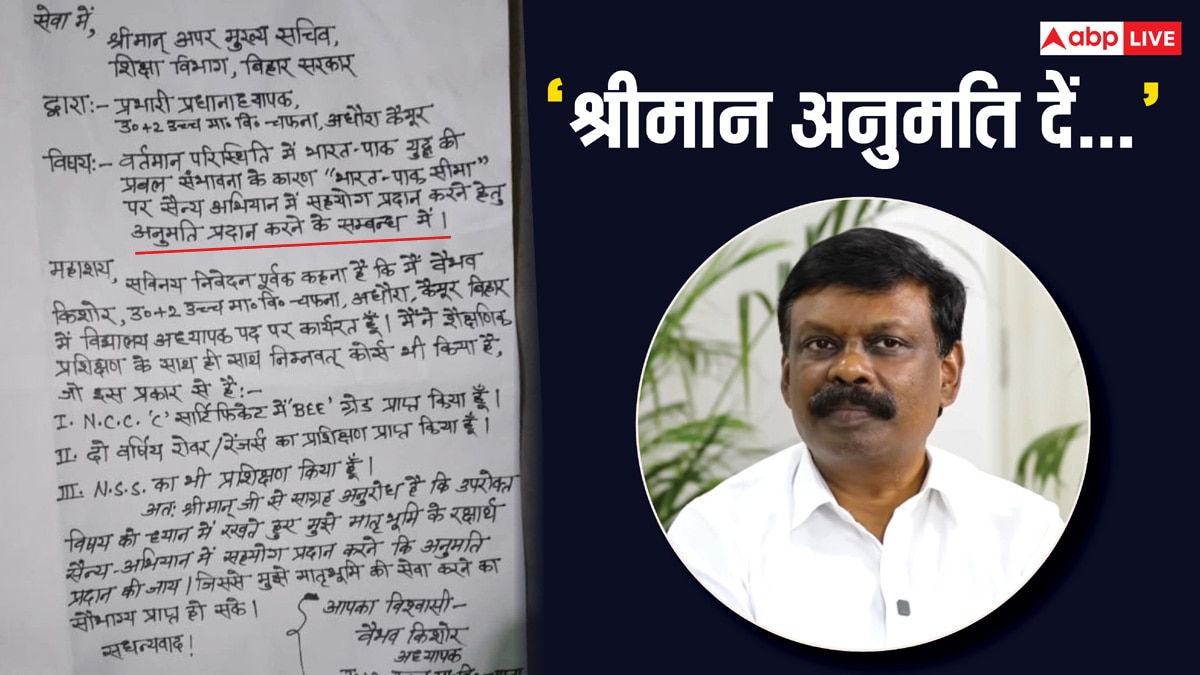 सेवा में,
श्रीमान् अपर मुख्य सचिव,
शिक्षा विभाग, बिहार सरकार
द्वारा:- प्रभारी प्रधानाध्यापक,
उ०+२ उच्च मा० वि० चफना, अधौरा कैमूर
विषय:- वर्तमान परिस्थिति में भारत-पाक युद्ध की
प्रबल संभावना के कारण "भारत-पाक सीमा"
पर सैन्य अभियान में सहयोग प्रदान करने हेतु
अनुमति प्रदान करने के सम्बन्ध में।
महाशय,
सविनय निवेदन पूर्वक कहना है कि मैं वैभव
किशोर, उ०+२ उच्च मा० वि० चफना, अधौरा, कैमूर बिहार
में विद्यालय अध्यापक पद पर कार्यरत हूँ। मैंने शैक्षणिक
प्रशिक्षण के साथ ही साथ निम्नवत् कोर्स भी किया है,
जो इस प्रकार से है:-
I. N.C.C. 'C' सार्टिफिकेट में 'BEE' ग्रेड प्राप्त किया हूँ।
II. दो वर्षिय रोवर/रेंजर्स का प्रशिक्षण प्राप्त किया हूँ।
III. N.S.S. का भी प्रशिक्षण किया हूँ।
अतः श्रीमान् जी से साग्रह अनुरोध है कि उपरोक्त
विषय को ध्यान में रखते हुए मुझे मातृभूमि के रक्षार्थ
सैन्य-अभियान में सहयोग प्रदान करने कि अनुमति
प्रदान की जाय। जिससे मुझे मातृभूमि की सेवा करने का
सौभाग्य प्राप्त हो सके।
सधन्यवाद!
आपका विश्वासी-
वैभव किशोर
अध्यापक
abp LIVE
'श्रीमान अनुमति दें...'